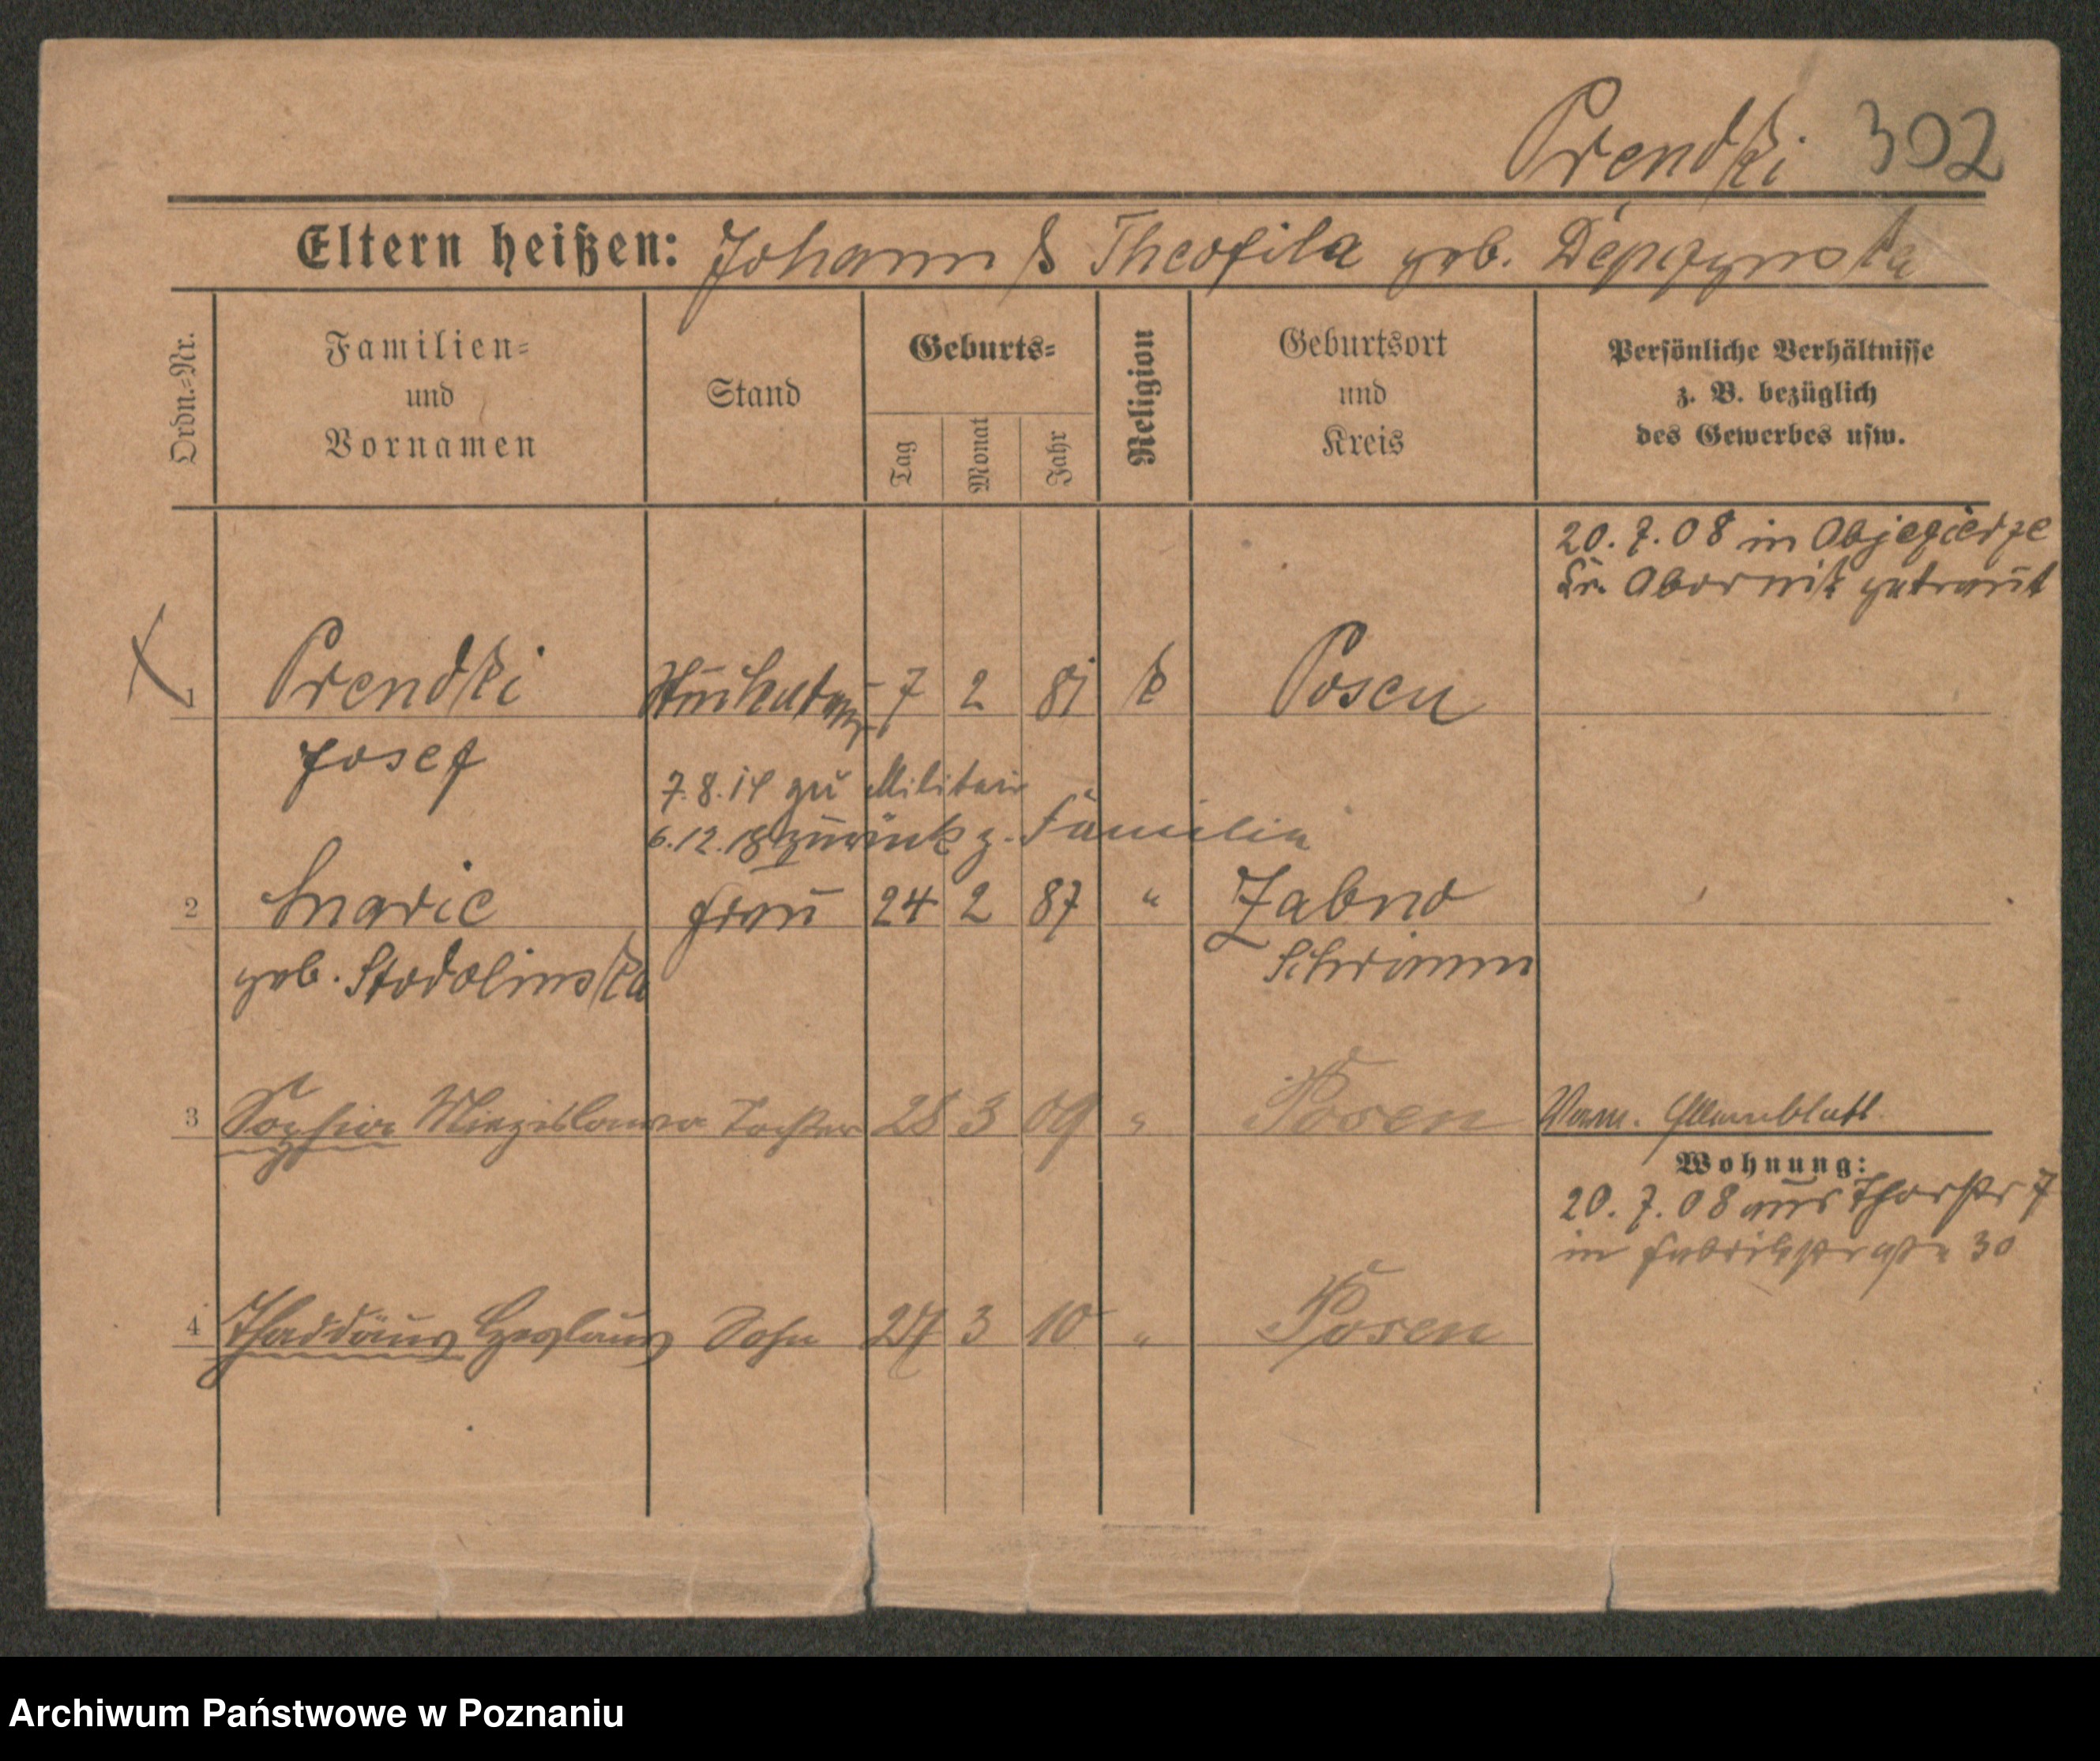 Prendki 302
Eltern heißen: Johann & Theofila geb.
Ordn.-Nr.
Familien-
und
Vornamen
Stand
Geburts-
Tag
Monat
Jahr
Religion
Geburtsort
und
Kreis
Persönliche Verhältnisse
z. B. bezüglich
des Gewerbes usw.
20. 7. 08 in Objezierze
Kr. Obornik getraut
1 Prendki 7 2 81 k Posen
Josef
7. 8. 14 zu Militair
6. 12. 18 zurück z. Familie
2 Marie Frau 24 2 87 " Zabno
geb. Stodolinska Schrimm
3 Sophia Miezislawa Tochter 28 3 09 " Posen
4 Thaddäus Czeslaus Sohn 3 10 " Posen
Wohnung:
20. 7. 08 aus Thorstr 7
in Fabrikstraße 30
Archiwum Państwowe w Poznaniu